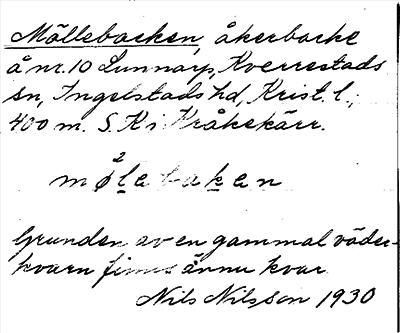 Möllebacken, åkerbacke
å nr. 10 Lunnarp, Kverrestads
sn, Ingelstads hd, Krist. l.,
400 m. S. K i Kråkekärr.
2
møle bakan
Grunden av en gammal väder-
kvarn finns ännu kvar
Nils Nilsson 1930